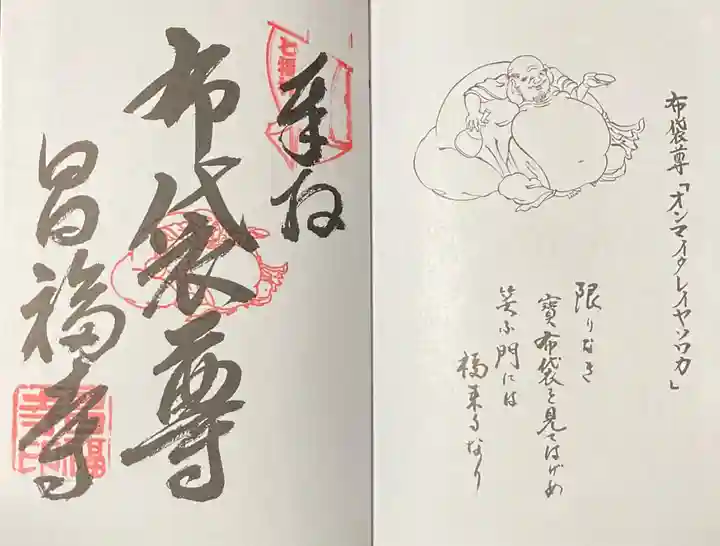 布袋尊「オンマイタレイヤソワカ」
限りなき
寶布袋を見てはげめ
笑ふ門には
福来るなり
奉拝
七福
布袋尊
昌福寺
昌福
寺印